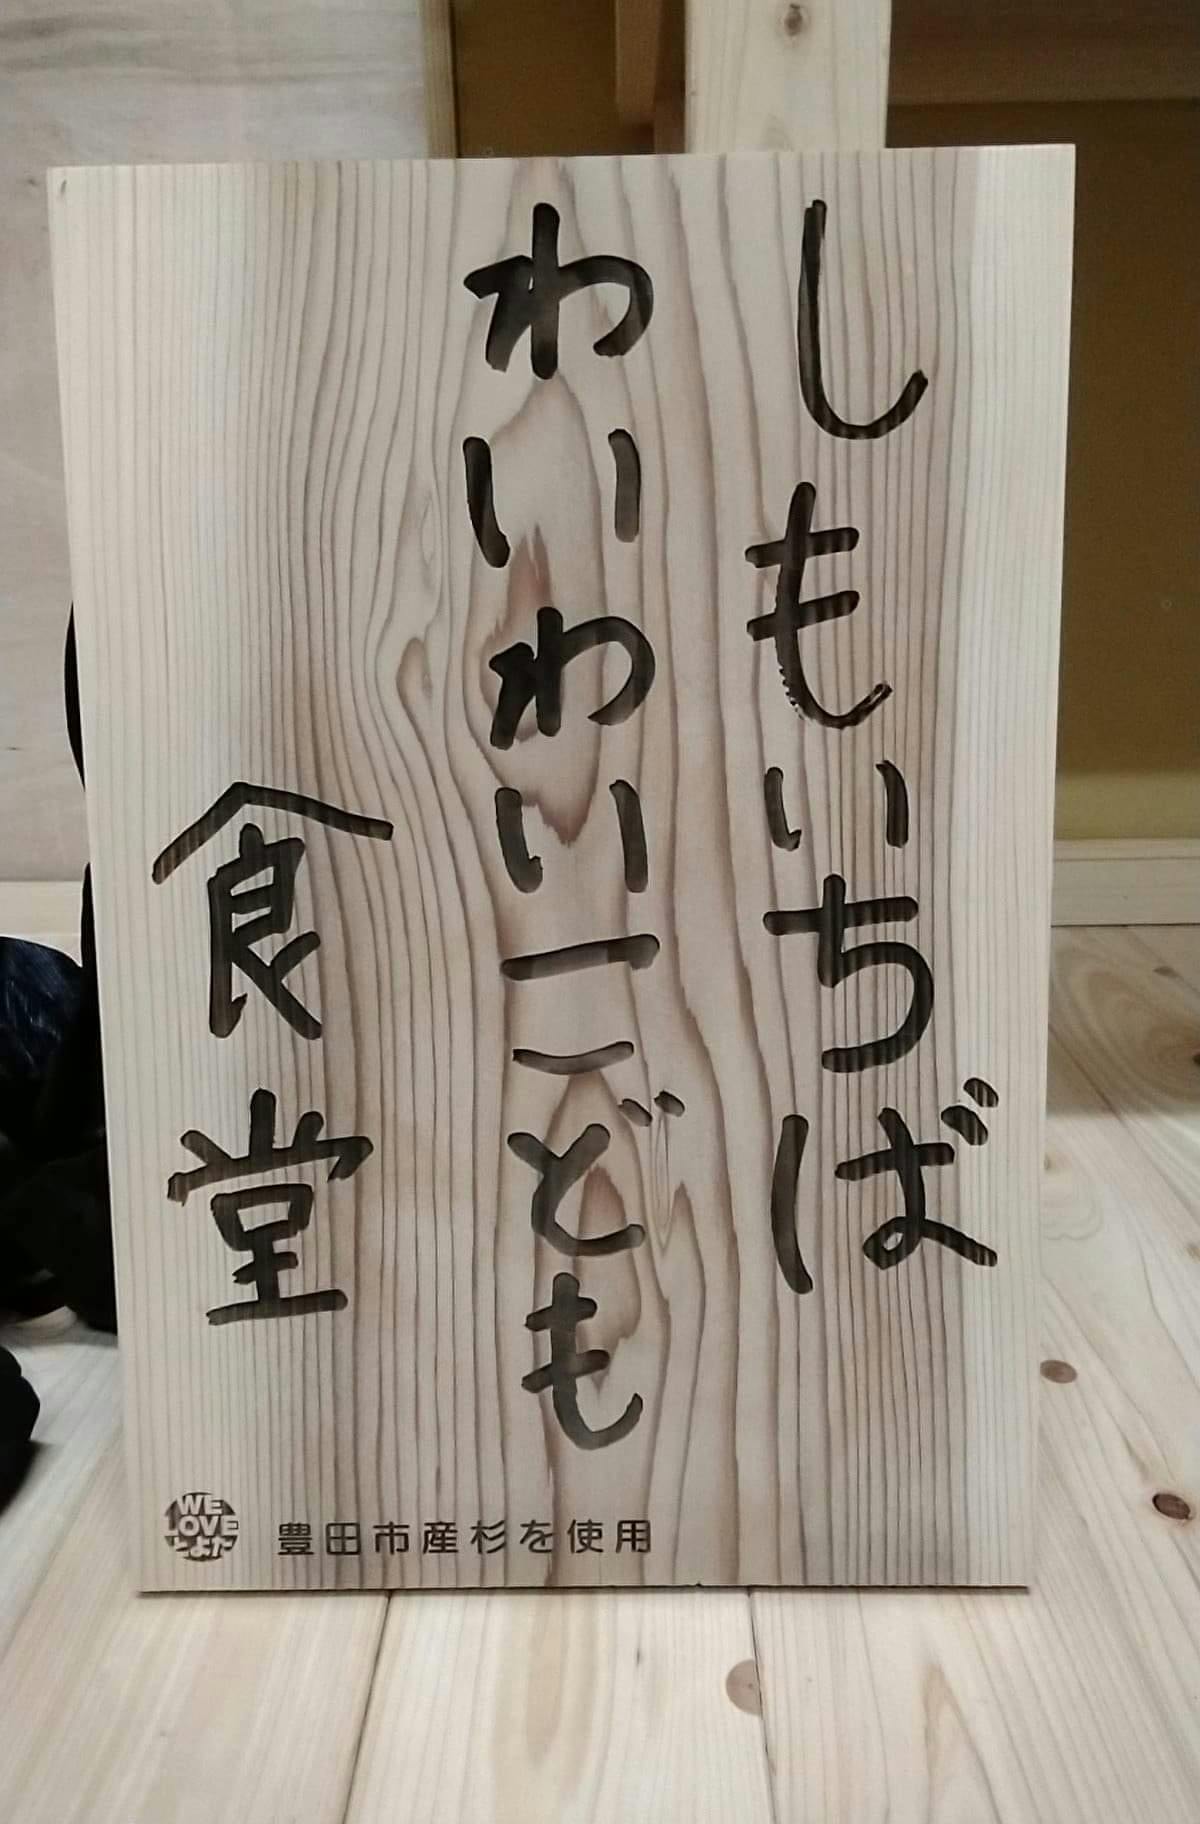 しもいちば
わいわいこども
食堂
WE
LOVE
とよた
豊田市産杉を使用